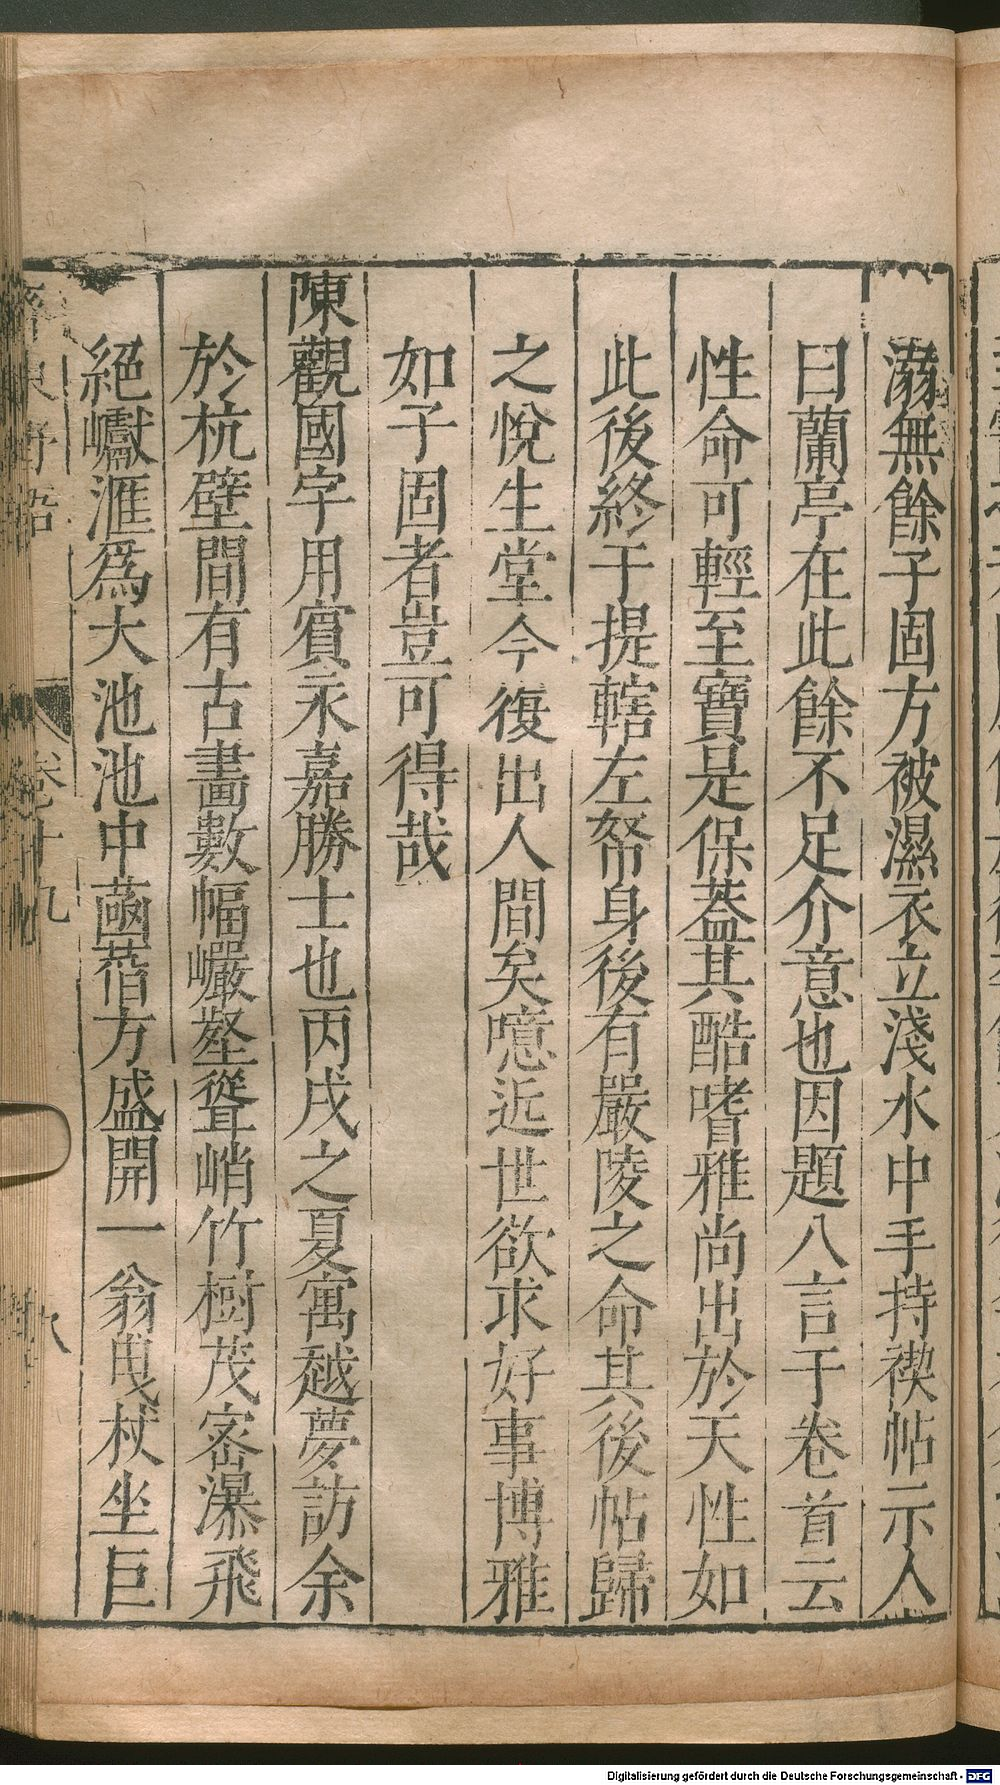 溺無餘子固方被濕衣立淺水中手持禊帖示人
曰蘭亭在此餘不足介意也因題八言于卷首云
性命可輕至寶是保蓋其酷嗜雅尚出於天性如
此後終于提轄左帑身後有嚴陵之命其後帖歸
之悅生堂今復出人間矣噫近世欲求好事博雅
如子固者豈可得哉
陳觀國字用賓永嘉勝士也丙戌之夏寓越夢訪余
於杭壁間有古畫數幅巗壑聳峭竹樹茂密瀑飛
絕巘滙爲大池池中菡萏方盛開一翁曳杖坐巨
齊東野語
卷十九
八
Digitalisierung gefördert durch die Deutsche Forschungsgemeinschaft - DFG